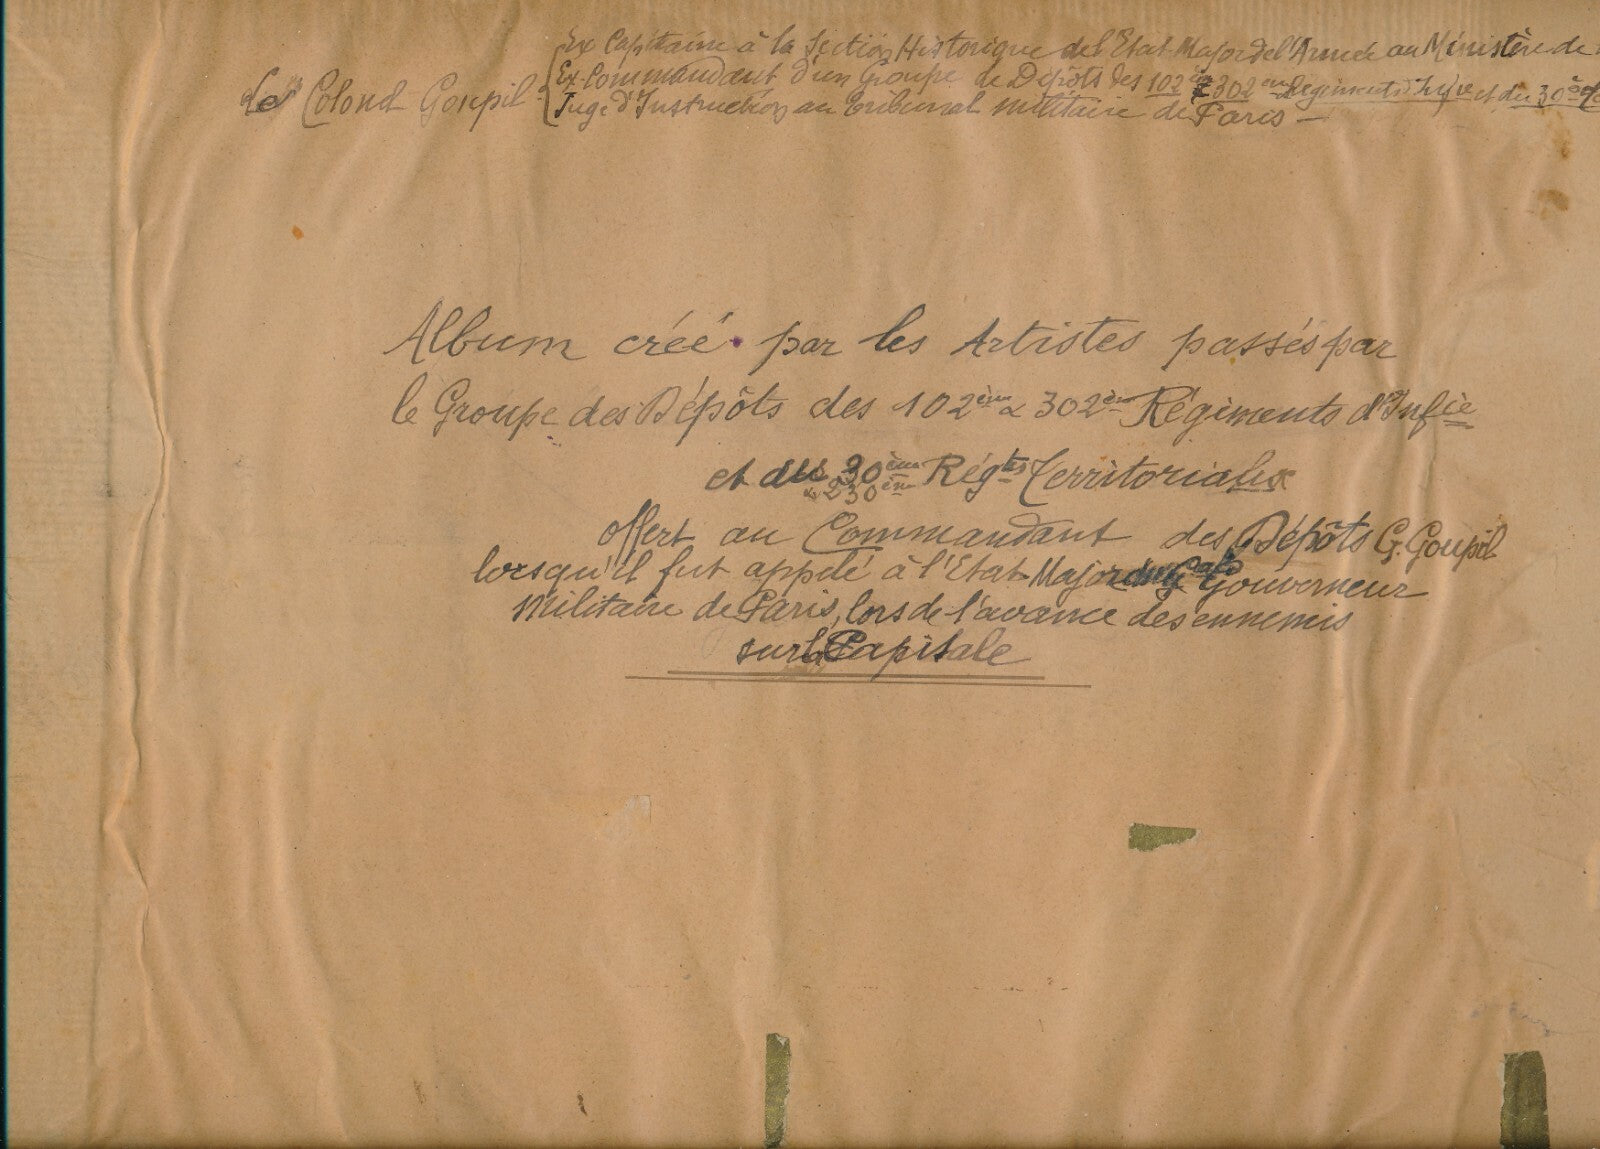 Ex Capitaine à la Section Historique de l'Etat-Major de l'Armée au Ministère de
Le Colonel Goupil Ex-Commandant d'un Groupe de Dépôts des 102 & 302 ème Régiments Infie et du 30ème
Juge d'Instruction au Tribunal militaire de Paris —
Album créé par les Artistes passés par
le Groupe des Dépôts des 102ème & 302ème Régiments d'Infie
et du 30ème Régts Territoriaux
& 230ème
offert au Commandant des Dépôts G. Goupil
lorsqu'il fut appelé à l'Etat-Major du Gal Gouverneur
Militaire de Paris, lors de l'avance des ennemis
sur la Capitale